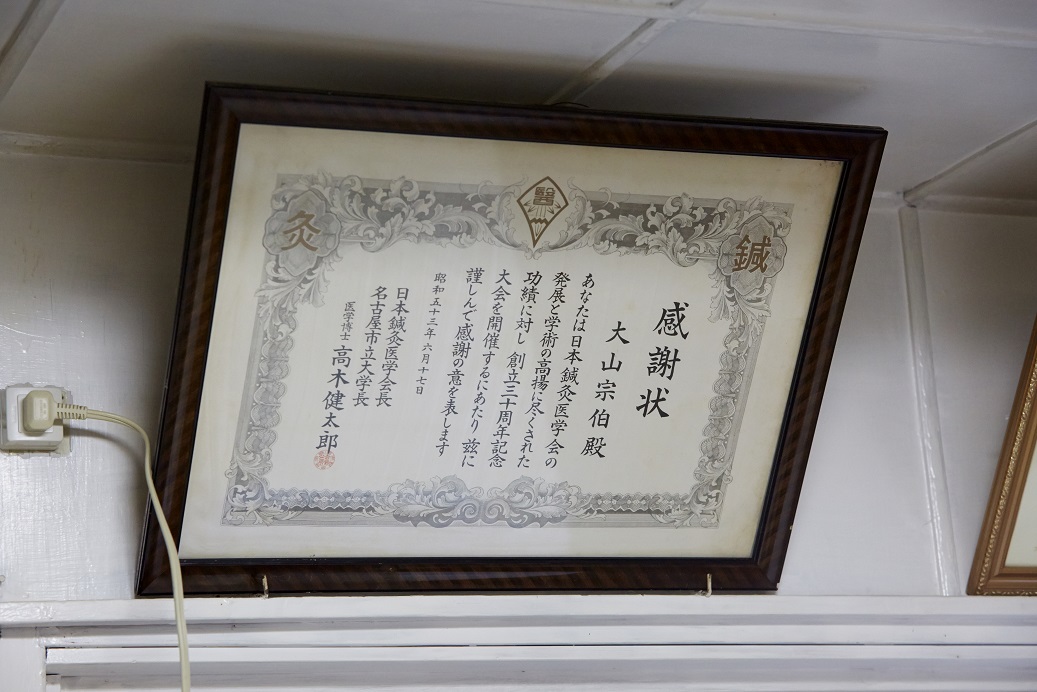 鍼
灸
感謝状
大山宗伯殿
あなたは日本鍼灸医学会の
発展と学術の高揚に尽くされた
功績に対し 創立三十周年記念
大会を開催するにあたり 玆に
謹しんで感謝の意を表します
昭和五十三年六月十七日
日本鍼灸医学会長
名古屋市立大学長
医学博士 高木健太郎